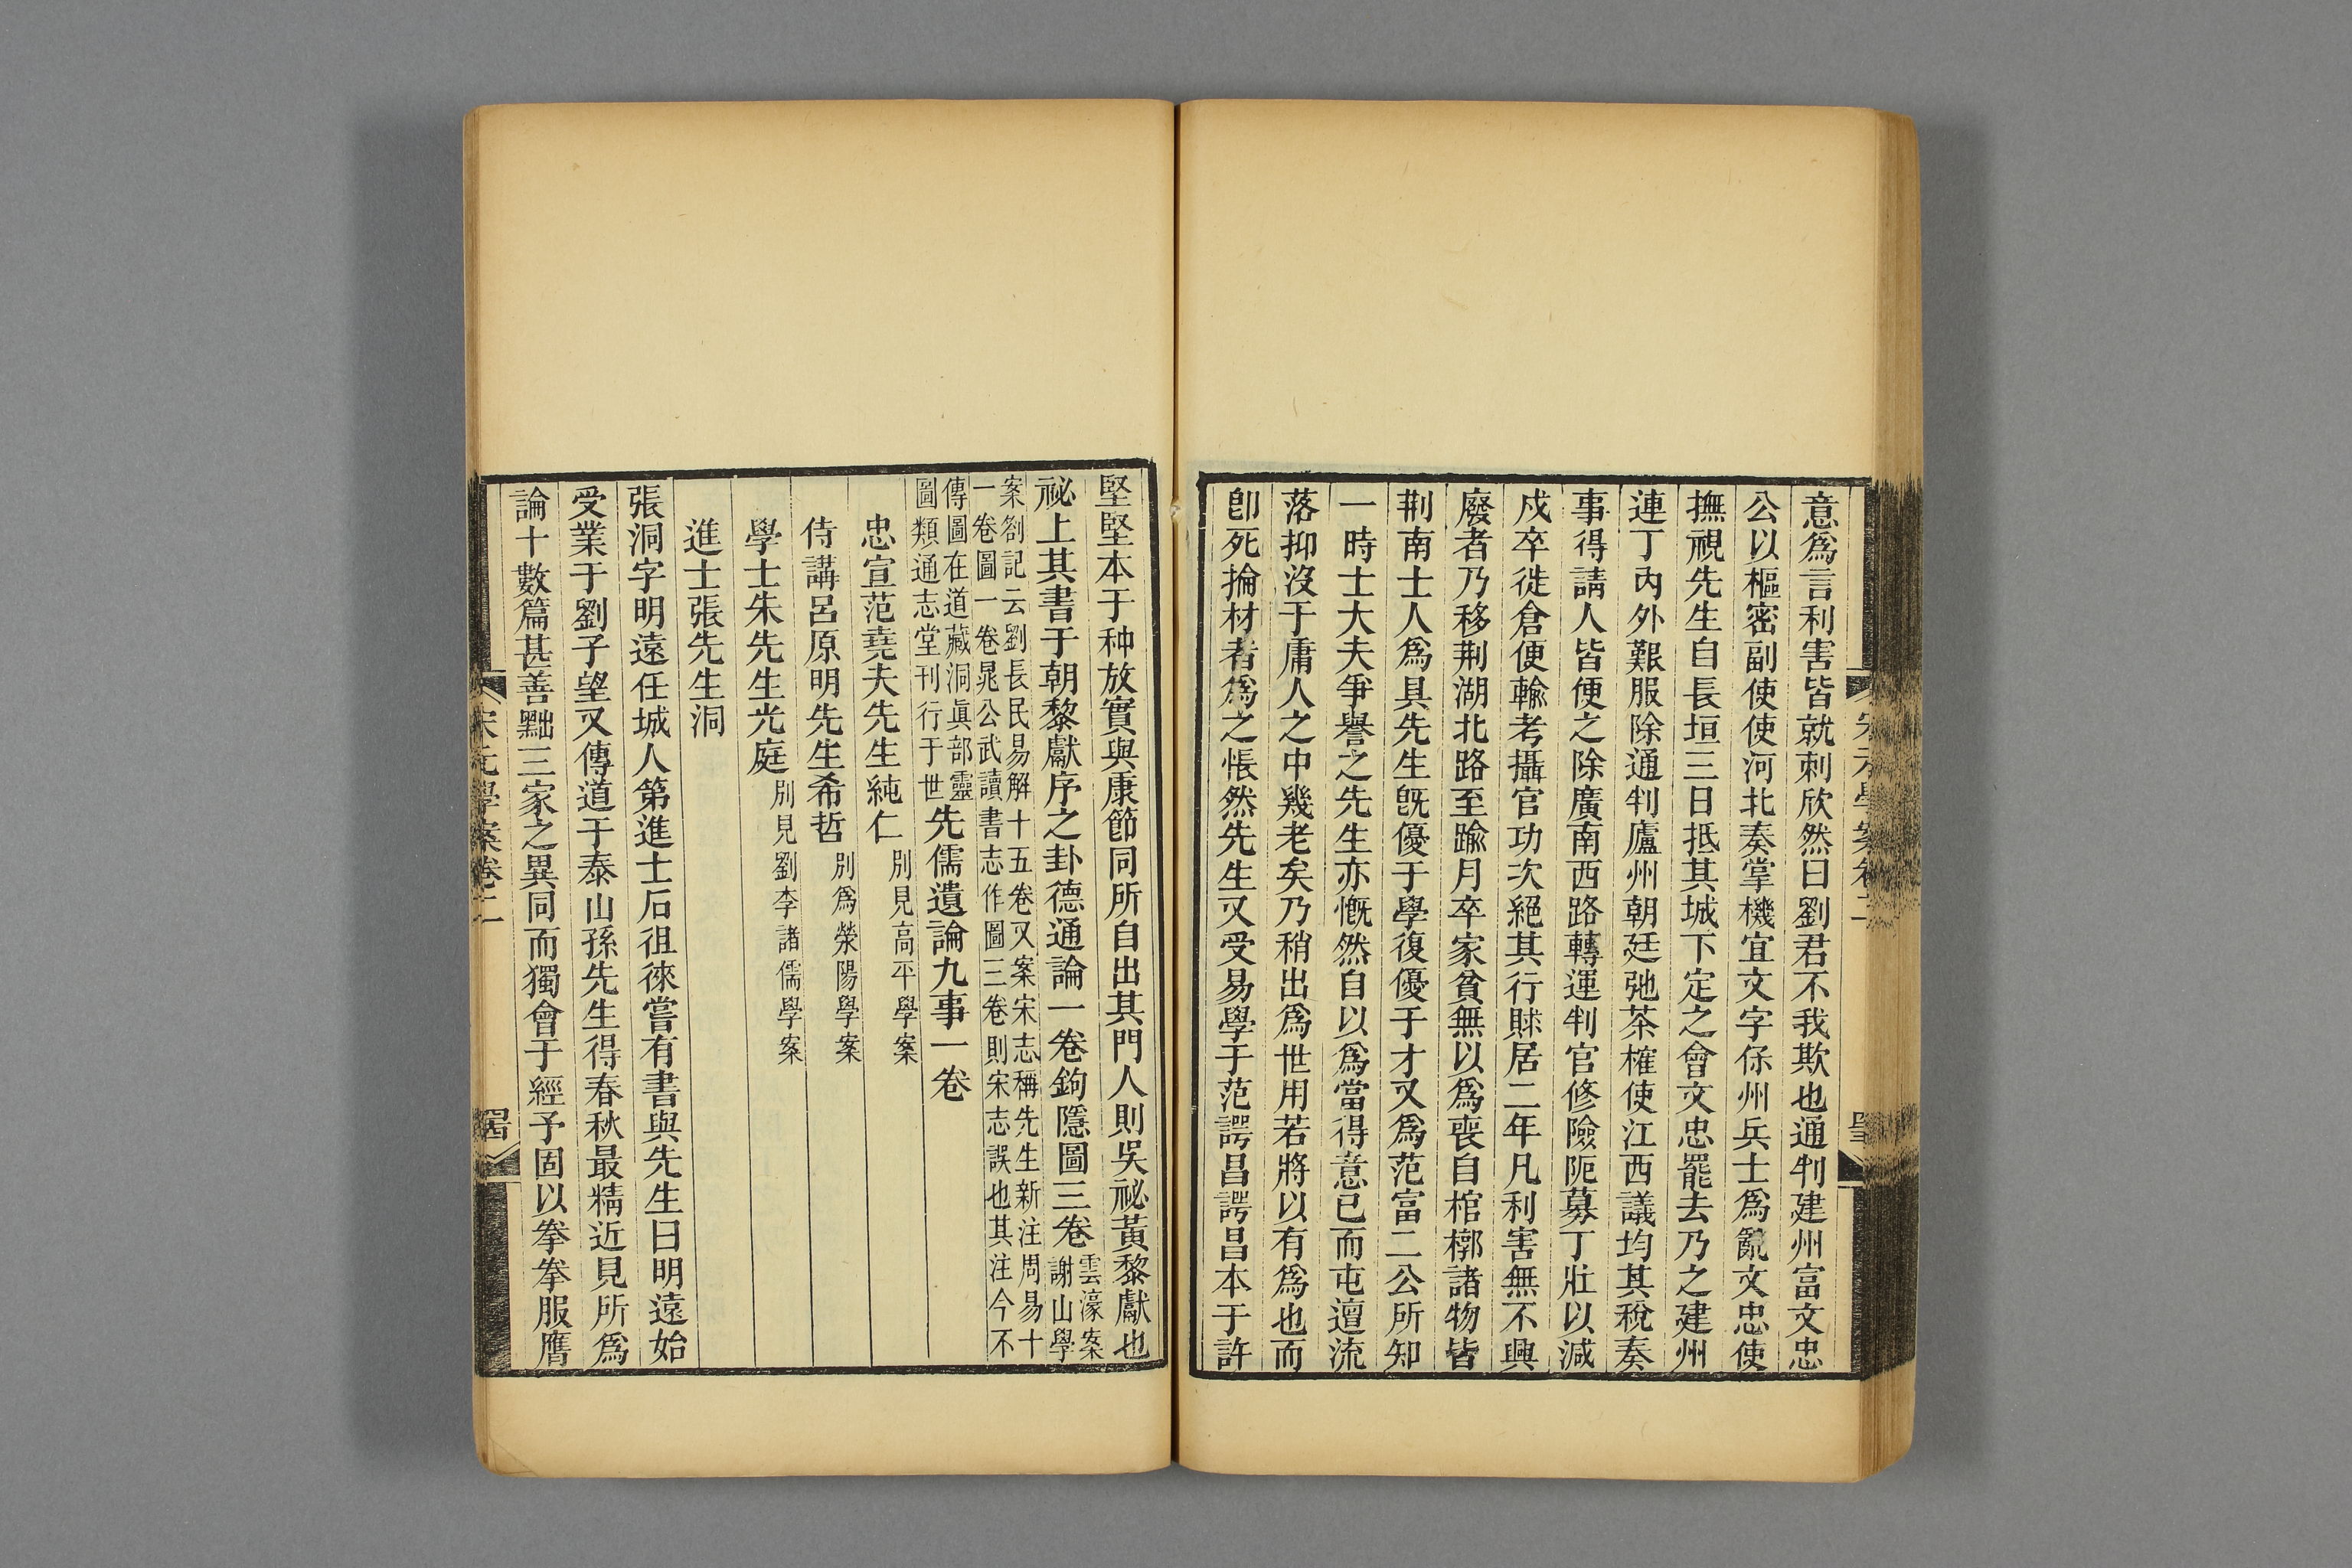 意爲言利害皆就刺欣然曰劉君不我欺也通判建州富文忠
公以樞密副使使河北奏掌機宜文字保州兵士爲亂文忠使
撫視先生自長垣三日抵其城下定之會文忠罷去乃之建州
連丁內外艱服除通判廬州朝廷弛茶榷使江西議均其稅奏
事得請人皆便之除廣南西路轉運判官修險阨募丁壯以減
戍卒徙倉便輸考攝官功次絕其行賕居二年凡利害無不興
廢者乃移荆湖北路至踰月卒家貧無以爲喪自棺槨諸物皆
荆南士人爲具先生旣優于學復優于才又爲范富二公所知
一時士大夫爭譽之先生亦慨然自以爲當得意已而屯邅流
落抑沒于庸人之中幾老矣乃稍出爲世用若將以有爲也而
卽死掄材者爲之悵然先生又受易學于范諤昌諤昌本于許
堅堅本于种放實與康節同所自出其門人則吳祕黃黎獻也
祕上其書于朝黎獻序之卦德通論一卷鉤隱圖三卷雲濠案謝山學
案劄記云劉長民易解十五卷又案宋志稱先生新注周易十
一卷圖一卷晁公武讀書志作圖三卷則宋志誤也其注今不
傳圖在道藏洞眞部靈
圖類通志堂刊行于世先儒遺論九事一卷
忠宣范堯夫先生純仁別見高平學案
侍講呂原明先生希哲別爲滎陽學案
學士朱先生光庭別見劉李諸儒學案
進士張先生洞
張洞字明遠任城人第進士石徂徠嘗有書與先生曰明遠始
受業于劉子望又傳道于泰山孫先生得春秋最精近見所爲
論十數篇甚善黜三家之異同而獨會于經予固以拳拳服膺
宋元學案卷二